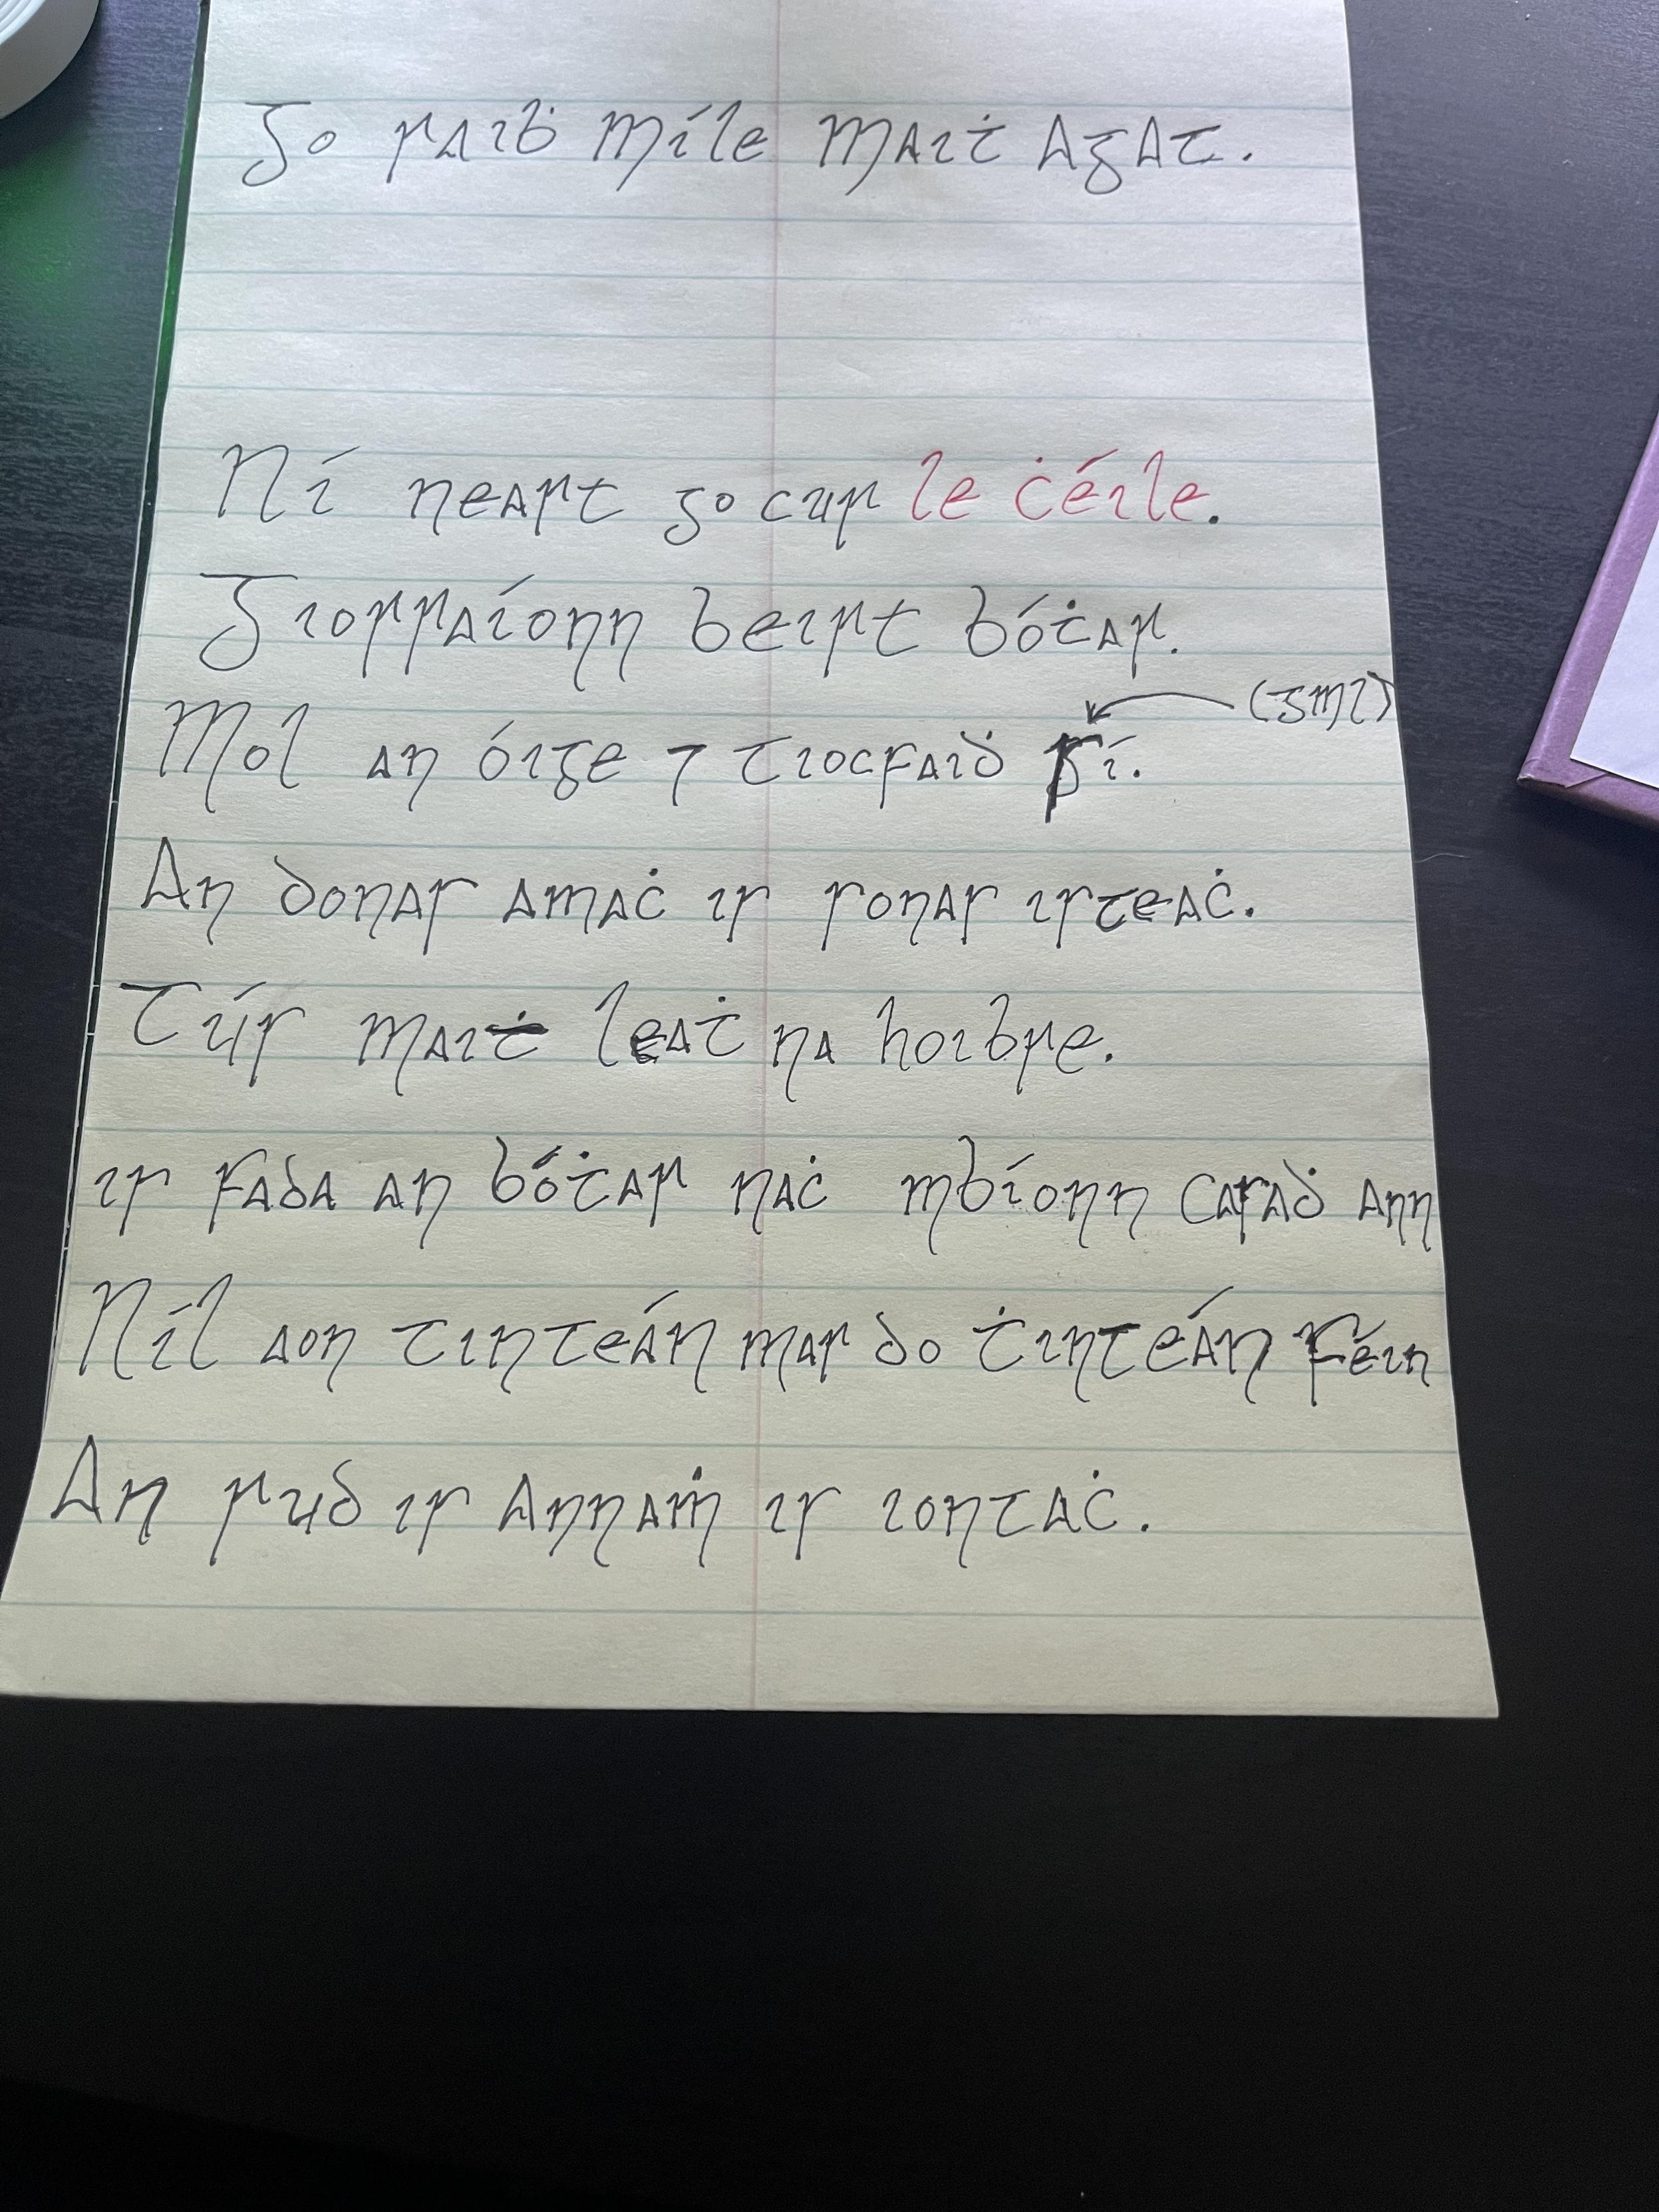 Go raiḃ míle maiṫ agat.
Ní neart go cur le ċéile.
Giorraíonn beirt bóṫar.
(gml)
Mol an óige ⁊ tiocfaiḋ sí.
An donas amaċ is sonas isteaċ.
Tús maiṫ leaṫ na hoibre.
is fada an bóṫar naċ mbíonn casaḋ ann
Níl aon tinteán mar do ṫinteán féin
An rud is annaṁ is iontaċ.